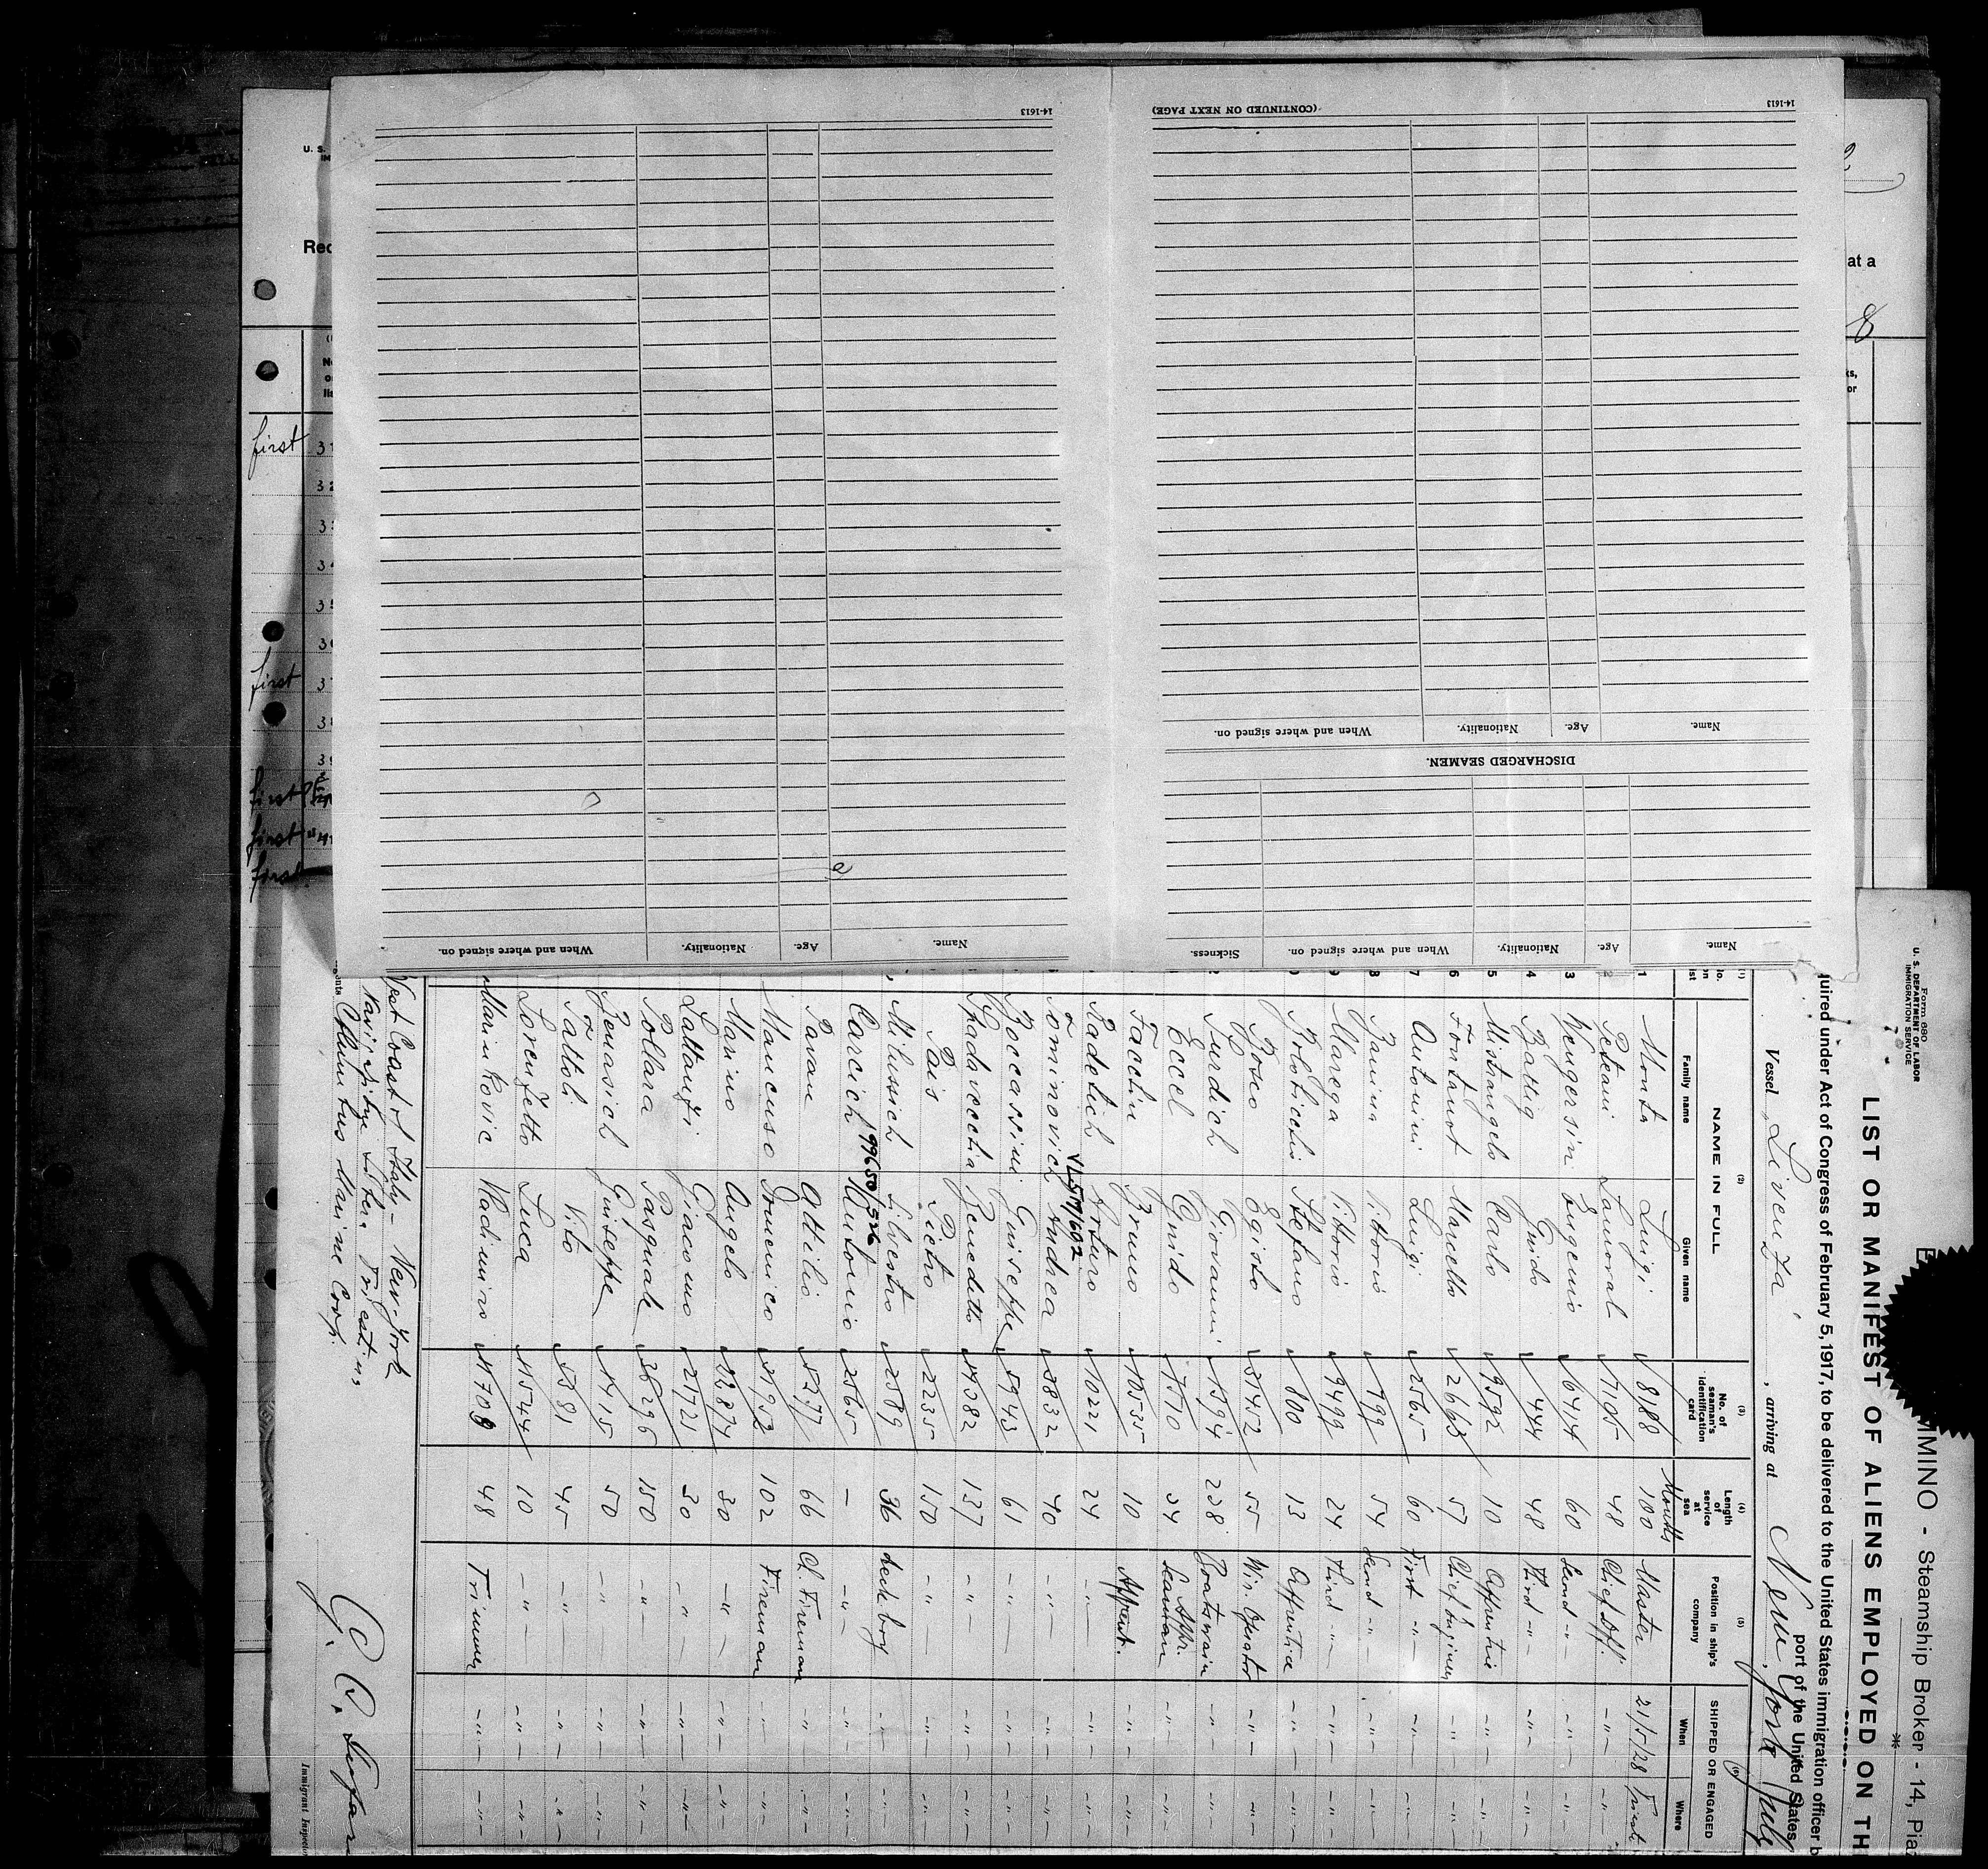 14-1613
(CONTINUED ON NEXT PAGE)
14-1613
Name.
Age.
Nationality.
When and where signed on.
DISCHARGED SEAMEN.
Name.
Age.
Nationality.
When and where signed on.
Sickness.
Name.
Age.
Nationality.
When and where signed on.
U. S.
IM
Rec
at a
8
first 31
32
33
34
35
36
first 37
38
39
first
first
first
Form 680
U. S. DEPARTMENT OF LABOR
IMMIGRATION SERVICE
MMINO - Steamship Broker - 14, Piaz
LIST OR MANIFEST OF ALIENS EMPLOYED ON TH
uired under Act of Congress of February 5, 1917, to be delivered to the United States immigration officer b
port of the United States
Vessel Livenza, arriving at New York July
(1) No. on list
(2) NAME IN FULL
Family name Given name
(3) No. of seaman's identification card
(4) Length of service at sea
(5) Position in ship's company
(6) SHIPPED OR ENGAGED
When Where
Months
1 Monta Luigi 8188 100 Master 21/5/28 Trieste
2 Peteani Lamoral 7105 48 Chief Off. -"- -"-
3 Vengersin Eugenio 6414 60 Second -"- -"- -"-
4 Battig Guido 444 48 Third -"- -"- -"-
5 Mistrangelo Carlo 19592 10 Apprentice -"- -"-
6 Fontanot Marcello 2663 57 Chief Engineer -"- -"-
7 Antonini Luigi 2565 60 First -"- -"- -"-
8 Banina Vittorio 799 54 Second -"- -"- -"-
9 Marega Vittorio 9499 24 Third -"- -"- -"-
Stefano 800 13 Apprentice -"- -"-
Bosco Egisto 31452 55 Wir. Operator -"- -"-
Surdich Giovanni 1594 238 Boatswain -"- -"-
Eccel Guido 7510 34 App. Seaman -"- -"-
Facchin Bruno 10535 10 Apprent. -"- -"-
Radotich Arturo 10221 24 -"- -"- -"-
VL 579/602
Tominovich Andrea 3832 40 -"- -"- -"-
Boccassini Guiseppe 5943 61 -"- -"- -"-
Spadavecchia Benedetto 14382 137 -"- -"- -"-
Pais Pietro 2235 150 -"- -"- -"-
Milussich Silvestro 2589 36 Deckboy -"- -"-
99650/526
Carcich Antonio 2565 - -"- -"- -"-
Pavan Attilio 5277 66 Ch. Fireman -"- -"-
Mancuso Domenico 31953 102 Fireman -"- -"-
Marino Angelo 12874 30 -"- -"- -"-
Lattanzi Giacomo 21721 30 -"- -"- -"-
Pollara Pasquale 36296 150 -"- -"- -"-
Benasich Guiseppe 1415 50 -"- -"- -"-
Tattoli Vito 5381 45 -"- -"- -"-
Lorenzetto Luca 11544 10 -"- -"- -"-
Marinkovic Vladimiro 11709 48 Trimmer -"- -"-
West Coast of Italy - New York
Libera Triestina
Marine Corp.
Immigrant Inspector